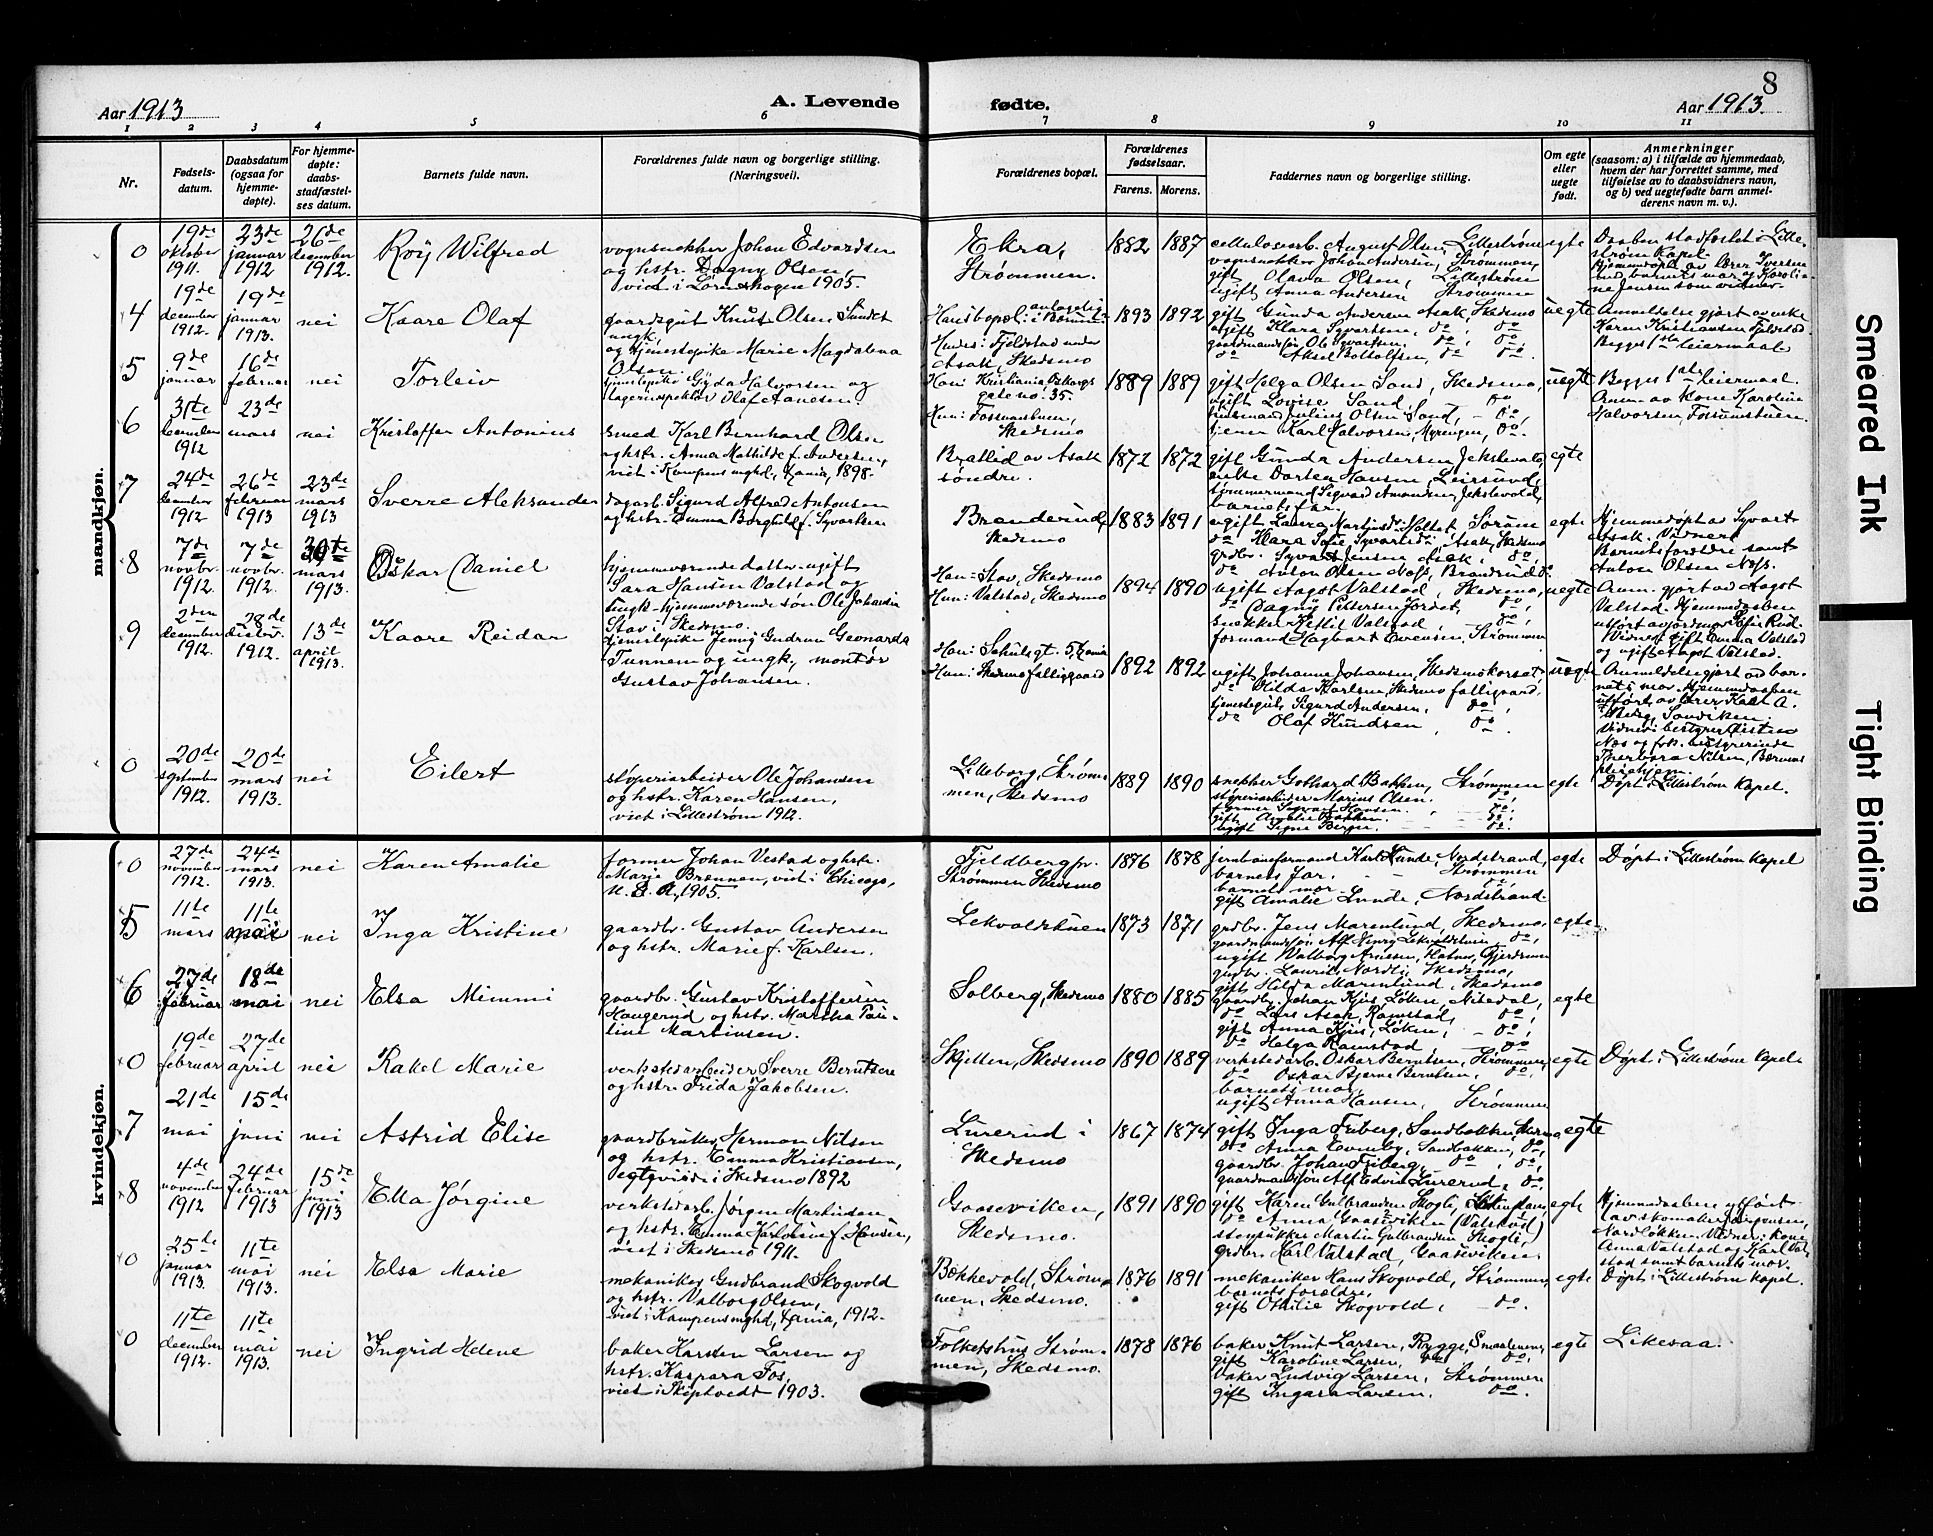 8
Aar 1913
A. Levende
fødte.
Aar 1913.
1 2 3 4 5 6 7 8 9 10 11
Nr.
Fødsels-
datum.
Daabsdatum
(ogsaa for
hjemme-
døpte).
For hjemme-
døpte:
daabs-
stadfæstel-
ses datum.
Barnets fulde navn.
Forældrenes fulde navn og borgerlige stilling.
(Næringsvei).
Forældrenes bopæl.
Forældrenes
fødselsaar.
Farens. Morens.
Faddernes navn og borgerlige stilling.
Om egte
eller
uegte
født.
Anmerkninger
(saasom: a) i tilfælde av hjemmedaab,
hvem der har forrettet samme, med
tilføielse av to daabsvidners navn,
og b) ved uegtefødte barn anmel-
derens navn m. v.).
mandkjøn.
0
19de
oktober
1911.
23de
januar
1912
26de
december
1912.
Roy Wilfred
vognsnekker Johan Edvardsen
og hstr. Dagny Olsen,
viet i Lørenskogen 1905.
Ekra,
Strømmen.
1882 1887
cellulosearb. August Olsen, Lillestrøm
vognsnekker Johan Andersen, Strømmen,
gift Olava Olsen, Lillestrøm
ugift Anna Andersen Strømmen
egte
Daaben stadfæstet i Lille-
strøm Kapel
Hjemmedøpt av lærer Iversen
med barnets mor og Karoli-
ne Jensen som vidner.
4
19de
december
1912.
19de
januar
1913.
nei
Kaare Olaf
gaardsgut Knut Olsen Sundet
ungk.
og tjenestepike Marie Magdalena
Olsen.
Hans bopæl: antagelig i Bærum
Hendes: Fjeldstad under
Asak, Skedsmo
1893 1892
gift Gunda Andersen Asak, Skedsmo
ugift Klara Syvartsen, do do
gaardmandssøn Ole Syvartsen, do, do,
do Aksel Bottolfsen, do do.
uegte
Anmeldelse gjort av enke
Karen Kristiansen Fjeldstad.
Begges 1ste leiermaal
5
9de
januar
16de
februar
nei
Torleiv
tjenestepike Gyda Halvorsen og
lagerinspektør Olaf Aanesen.
Han: Kristiania, Oskarsgate no. 35.
Hun: Fossumstuen,
Skedsmo
1889 1889
gift Helga Olsen Sand, Skedsmo,
ugift Lovise Sand, do
husmand Julius Olsen Sand, - do,
tjener Karl Halvorsen, Myrengen, do.
uegte
Begges 1ste leiermaal.
Anm. av kone Karoline
Halvorsen Fossumstuen.
6
31te
december
1912
23de
mars
nei
Kristoffer Antonius
smed Karl Bernhard Olsen
og hstr. Anna Mathilde f. Andersen,
viet i Kampens mghd, Kr.ania, 1898.
Bratlid av Asak
søndre.
1872 1872
gift Gunda Andersen Jekslevold,
enke Dortea Hansen Leirsund,
tømmermand Sigvard Amundsen, Jekslevold,
barnets far.
egte
7
24de
december
1912
26de
februar
1913
23de
mars
1913
Sverre Aleksander
dagarb. Sigurd Alfred Antonsen
og hstr. Emma Borghild f. Syvartsen
Branderud,
Skedsmo
1883 1891
ugift Laura Martinsdr. Holtet, Sørum
do Klara Sofie Syvartsdr. Asak, Skedsmo
grdbr. Syvart Jensen Asak, do,
do Anton Olsen Næss, Branderud, do.
egte
Hjemmedøpt av Syvart
Asak. Vidner:
Barnets forældre samt
Anton Olsen Næss.
8
7de
novbr.
1912.
7de
novbr.
1912.
30te
mars
1913.
Oskar Daniel
hjemmeværende datter ugift
Sara Hansen Valstad og
ungk. hjemmeværende søn Ole Johansen
Stav i Skedsmo.
Han: Stav, Skedsmo
Hun: Valstad, Skedsmo
1894 1890
ugift Aagot Valstad, Skedsmo,
do Dagny Pettersen Jordet, do,
snekker Kittil Valstad, do,
formand Hagbart Evensen, Strømmen
uegte
Anm. gjort av Aagot
Valstad. Hjemmedaaben
utført av jordmor Sofie Rud.
Vidner: gift Emma Valstad
og ugift Aagot Valstad.
9
2den
december
1912.
28de
decbr.
1912.
13de
april
1913.
Kaare Reidar
tjenestepike Jenny Gudrun Leonarda
Tunnem og ungk., montør
Gustav Johansen.
Han: Schulsgt. 5, Kr.ania
Hun: Skedsmo fattiggaard
1892 1892
ugift Johanna Johansen, Skedsmokorset
do Hilda Karlsen, Skedsmo fattiggaard,
tjenestegut Sigurd Andersen, do,
do Olaf Knudsen, do
uegte
Anmeldelse gjort av bar-
nets mor. Hjemmedaaben
utført av lærer Karl A.
Berg, Sandviken.
Vidner: bestyrer Eistein
Næs og frk. bestyrerinde
Nilsen, Bærums
pleiehjem.
0
20de
september
1912.
20de
mars
1913.
nei
Eilert
støperiarbeider Ole Johansen
og hstr. Karen Hansen,
viet i Lillestrøm 1912.
Lilleborg, Strøm-
men, Skedsmo
1889 1890
snekker Gothard Bakken, Strømmen
støperiarbeider Marius Olsen. do,
former Sigvart Hansen - do,
gift Amalie Bakken. - - do,
ugift Signe Berger. - - do.
egte
Døpt i Lillestrøm Kapel.
kvindekjøn.
0
27de
november
1912.
24de
mars
1913.
nei
Karen Amalie
former Johan Vestad og hstr.
Marie Brænnen, viet i Chicago,
U. S. A, 1905.
Fjeldberg pr.
Strømmen Skedsmo
1876 1878
jernbaneformand Karl Lunde, Nordstrand,
barnets far. - - Strømmen
barnets mor - - do.
gift Amalie Lunde, Nordstrand.
egte
Døpt i Lillestrøm Kapel
5
11te
mars
11te
mai
nei
Inga Kristine
gaardbr. Gustav Andersen
og hstr. Marie f. Karlsen.
Lekvoldstuen
1873 1871
grdbr. Jens Marenlund, Skedsmo,
gaardmandssøn Alf Henry Lekvoldstuen, do,
ugift Valborg Arnesen, Gjerdrum
grdbr. Laurits Nordli, Skedsmo,
gift Hilda Marenlund, Skedsmo
egte
6
27de
februar
18de
mai
nei
Elsa Mimmi
gaardbr. Gustav Kristoffersen
Haugerud og hstr. Martha Pau-
line Martinsen.
Solberg, Skedsmo
1880 1885
gaardbr. Johan Kjus, Løken, Nitedal,
do Lars Asak, Ramstad, do,
gift Anna Kjus, Løken, - do,
do Helga Ramstad, - do
egte
0
19de
februar
27de
april
nei
Rakel Marie
verkstedarbeider Sverre Berntsen
og hstr. Frida Jakobsen.
Skjetten, Skedsmo
1890 1889
verkstedarb. Oskar Berntsen, Strømmen,
do Oskar Bjarne Berntsen, do,
barnets mor,
ugift Anna Hansen, Strømmen
egte
Døpt i Lillestrøm Kapel.
7
21de
mai
15de
juni
nei
Astrid Elise
gaardbruker Herman Nilsen
og hstr. Emma Kristiansen,
egtgviede i Skedsmo 1892
Lurerud i
Skedsmo
1867 1874
gift Inga Friberg, Sandbakken, Skedsmo,
do Anna Tveenby, Sandbakken, do,
gaardbr. Johan Friberg, do, do,
gaardmandssøn Alf Edvin Lurerud, do.
egte
8
4de
november
1912
24de
februar
1913
15de
juni
1913
Ella Jørgine
verkstedarb. Jørgen Martinsen
og hstr. Emma Karlotine f. Hansen,
viet i Skedsmo 1911.
Gaaseviken,
Skedsmo.
1891 1890
gift Karen Gulbrandsen Skogli,
do Anna Gaaseviken (Valstad)
stavpukker Martin Gulbrandsen Skogli,
grdbr. Karl Valstad, Gaaseviken.
egte
Hjemmedaaben utført
av skomaker Jørgensen,
Nordløkken. Vidner: kone
Anna Valstad og Karl Val-
stad samt barnets mor.
0
25de
januar
1913.
11te
mai
1913.
nei
Elsa Marie
mekaniker Gudbrand Skogvold
og hstr. Valborg Olsen,
viet i Kampens mghd, Kr.ania, 1912.
Bækkevold, Strøm-
men, Skedsmo.
1876 1891
mekaniker Hans Skogvold, Strømmen,
barnets forældre,
gift Othilie Skogvold, do.
egte
Døpt i Lillestrøm Kapel.
0
11te
december
1912.
11te
mai
1913.
nei
Ingrid Helene
baker Karsten Larsen og
hstr. Kaspara Fos,
viet i Skiptvedt 1903.
Folketshus Strøm-
men, Skedsmo.
1878 1876
baker Knut Larsen, Rygge, Smaalenene,
gift Karoline Larsen, do,
baker Ludvig Larsen, Strømmen
gift Ingara Larsen, do.
egte
Likesaa.
Smeared Ink
Tight Binding